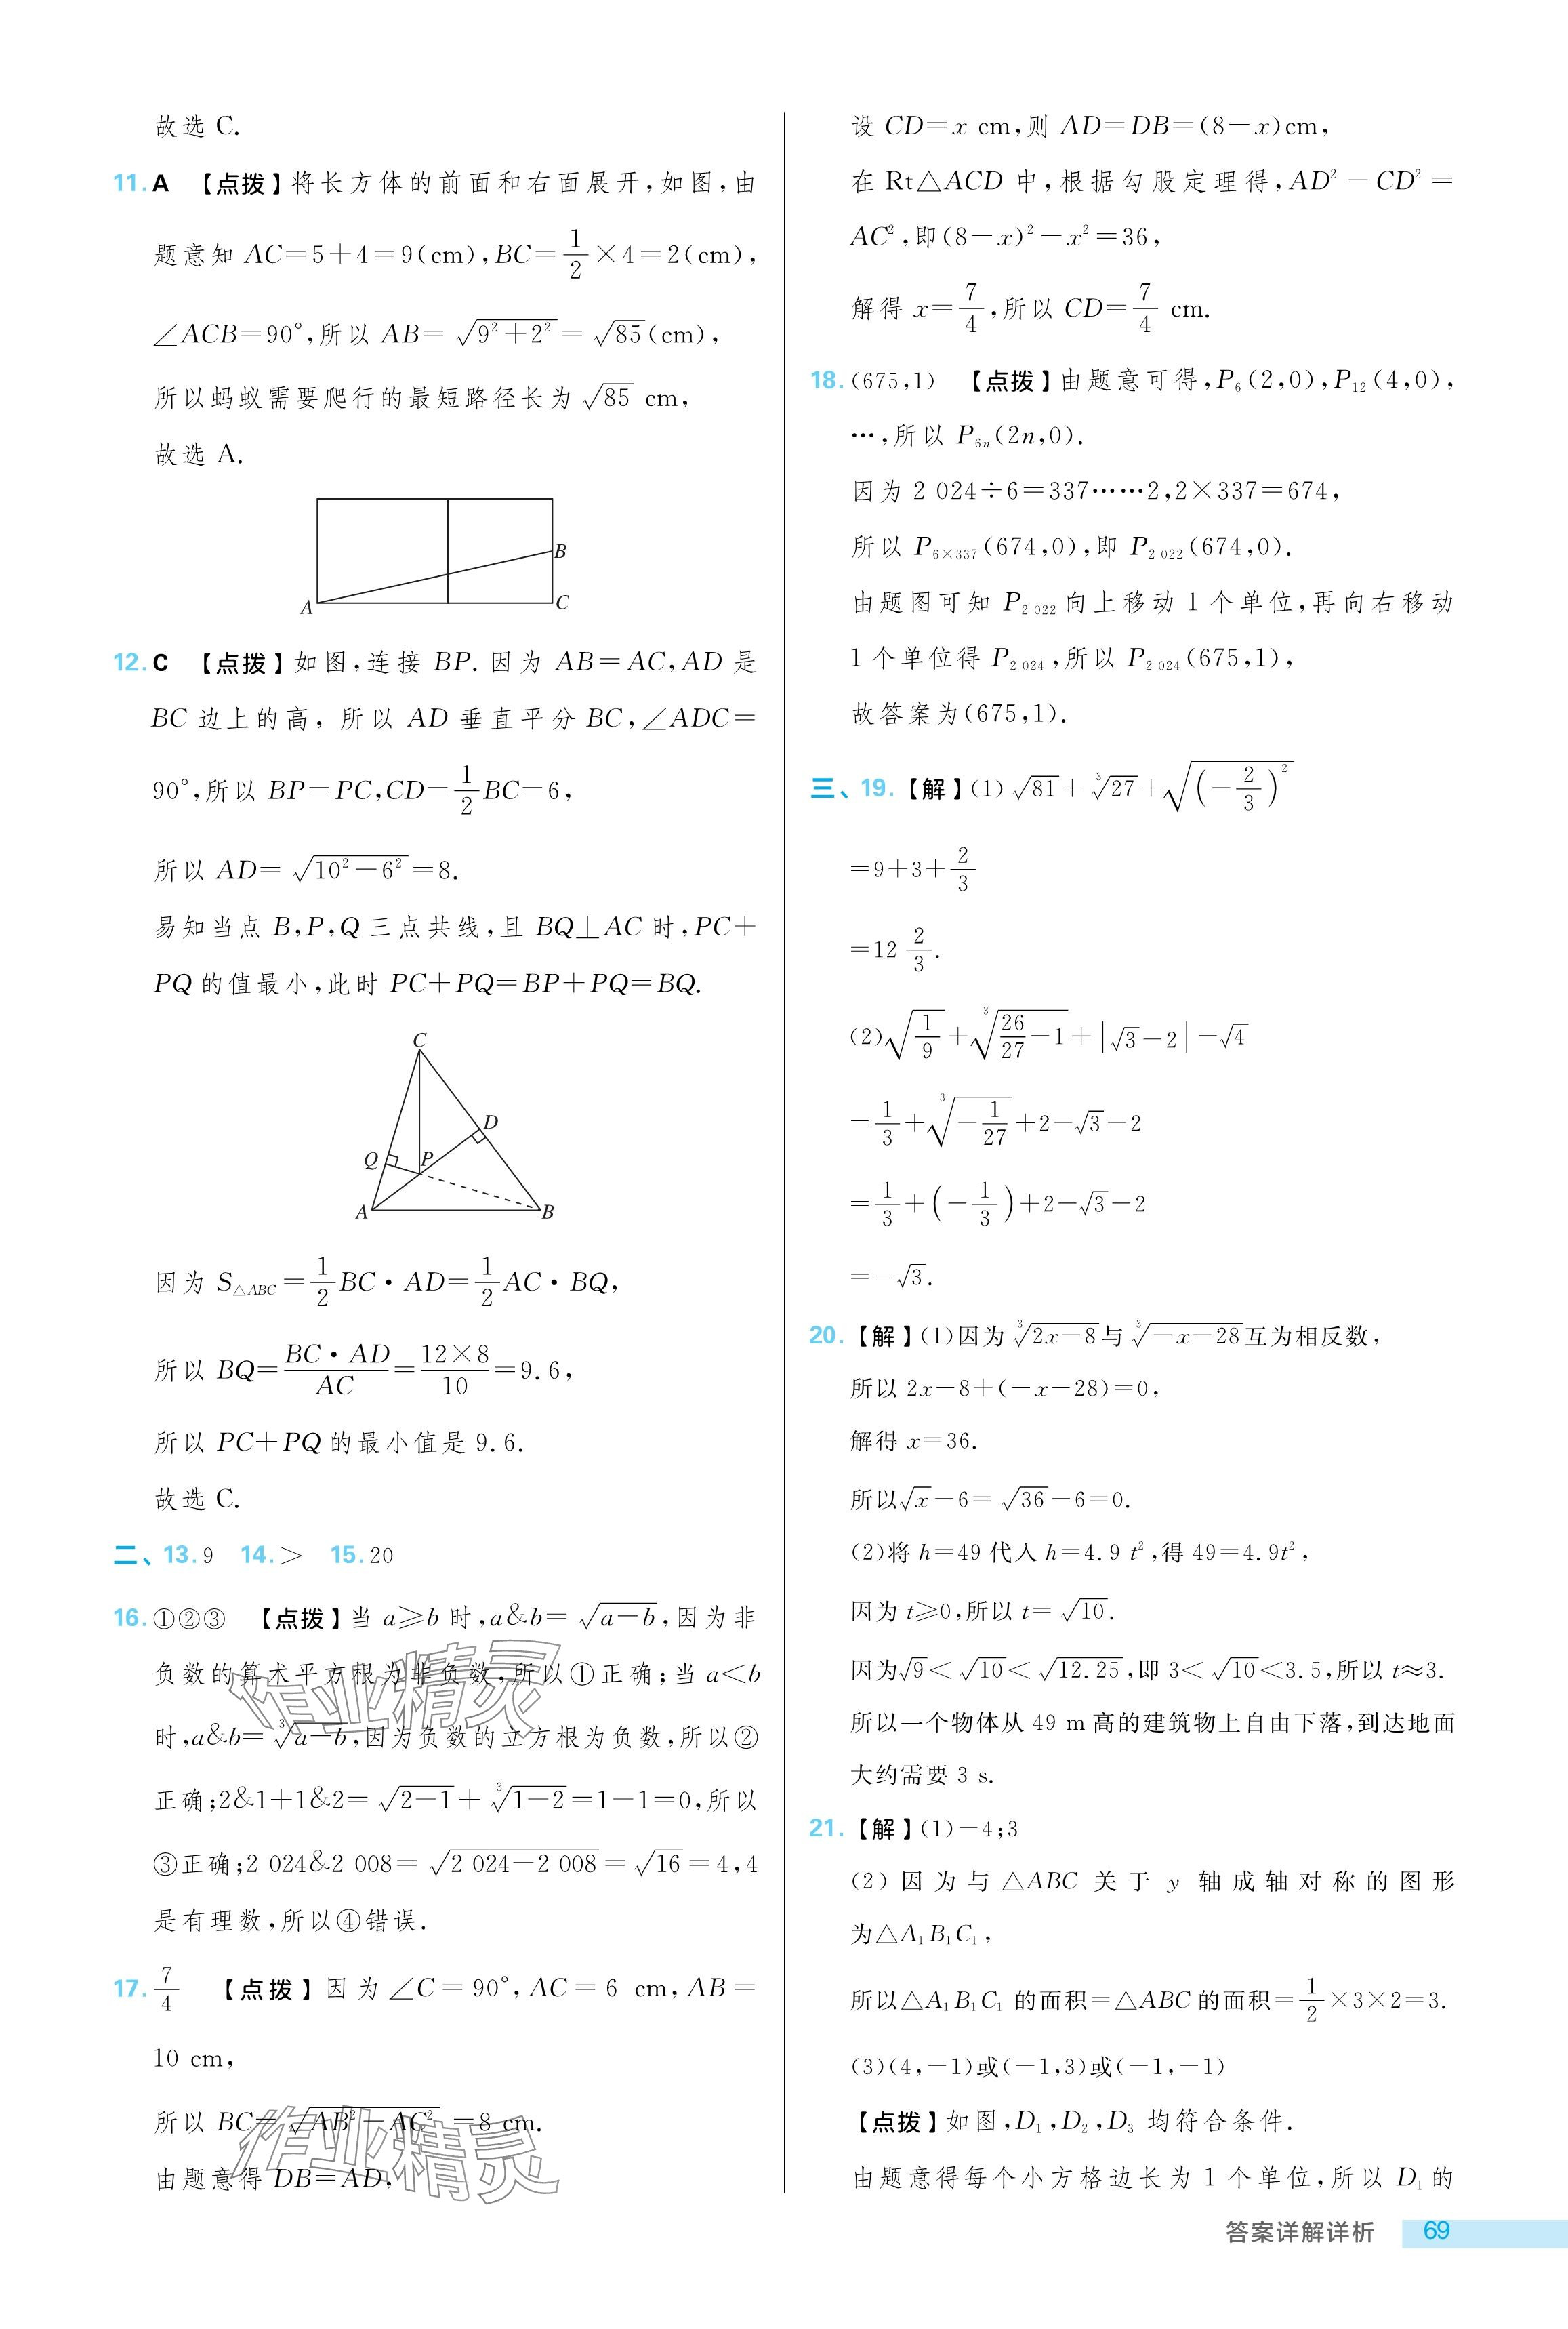 故选 C.
11. A 【点拨】将长方体的前面和右面展开,如图,由
题意知 AC=5+4=9(cm),BC=1/2×4=2(cm),
∠ACB=90°,所以 AB=√(9²+2²)=√85(cm),
所以蚂蚁需要爬行的最短路径长为√85 cm,
故选 A.
B
A
C
12. C 【点拨】如图,连接 BP. 因为 AB=AC,AD 是
BC 边上的高,所以 AD 垂直平分 BC,∠ADC=
90°,所以 BP=PC,CD=1/2BC=6,
所以 AD=√(10²-6²)=8.
易知当点 B,P,Q 三点共线,且 BQ⊥AC 时,PC+
PQ 的值最小,此时 PC+PQ=BP+PQ=BQ.
C
D
Q
P
A
B
因为 S△ABC=1/2BC·AD=1/2AC·BQ,
所以 BQ=(BC·AD)/AC=(12×8)/10=9.6,
所以 PC+PQ 的最小值是 9.6.
故选 C.
二、13. 9 14. > 15. 20
16. ①②③ 【点拨】当 a≥b 时,a&b=√(a-b),因为非
负数的算术平方根为非负数,所以①正确;当 a<b
时,a&b=³√(a-b),因为负数的立方根为负数,所以②
正确;2&1+1&2=√(2-1)+³√(1-2)=1-1=0,所以
③正确;2 024&2 008=√(2 024-2 008)=√16=4,4
是有理数,所以④错误.
17. 7/4 【点拨】因为∠C=90°,AC=6 cm,AB=
10 cm,
所以 BC=√(AB²-AC²)=8 cm.
由题意得 DB=AD,
作业精灵
作业精灵
设 CD=x cm,则 AD=DB=(8-x)cm,
在 Rt△ACD 中,根据勾股定理得,AD²-CD²=
AC²,即(8-x)²-x²=36,
解得 x=7/4,所以 CD=7/4 cm.
18. (675,1) 【点拨】由题意可得,P₆(2,0),P₁₂(4,0),
…,所以 P₆ₙ(2n,0).
因为 2 024÷6=337……2,2×337=674,
所以 P₆×₃₃₇(674,0),即 P₂ ₀₂₂(674,0).
由题图可知 P₂ ₀₂₂向上移动 1 个单位,再向右移动
1 个单位得 P₂ ₀₂₄,所以 P₂ ₀₂₄(675,1),
故答案为(675,1).
三、19.【解】(1)√81+³√27+√((-2/3)²)
=9+3+2/3
=12 2/3.
(2)√(1/9)+³√(26/27-1)+|√3-2|-√4
=1/3+³√(-1/27)+2-√3-2
=1/3+(-1/3)+2-√3-2
=-√3.
20.【解】(1)因为³√(2x-8)与³√(-x-28)互为相反数,
所以 2x-8+(-x-28)=0,
解得 x=36.
所以√x-6=√36-6=0.
(2)将 h=49 代入 h=4.9 t²,得 49=4.9t²,
因为 t≥0,所以 t=√10.
因为√9<√10<√12.25,即 3<√10<3.5,所以 t≈3.
所以一个物体从 49 m 高的建筑物上自由下落,到达地面
大约需要 3 s.
21.【解】(1)-4;3
(2)因为与△ABC 关于 y 轴成轴对称的图形
为△A₁B₁C₁,
所以△A₁B₁C₁ 的面积=△ABC 的面积=1/2×3×2=3.
(3)(4,-1)或(-1,3)或(-1,-1)
【点拨】如图,D₁,D₂,D₃ 均符合条件.
由题意得每个小方格边长为 1 个单位,所以 D₁ 的
答案详解详析 69